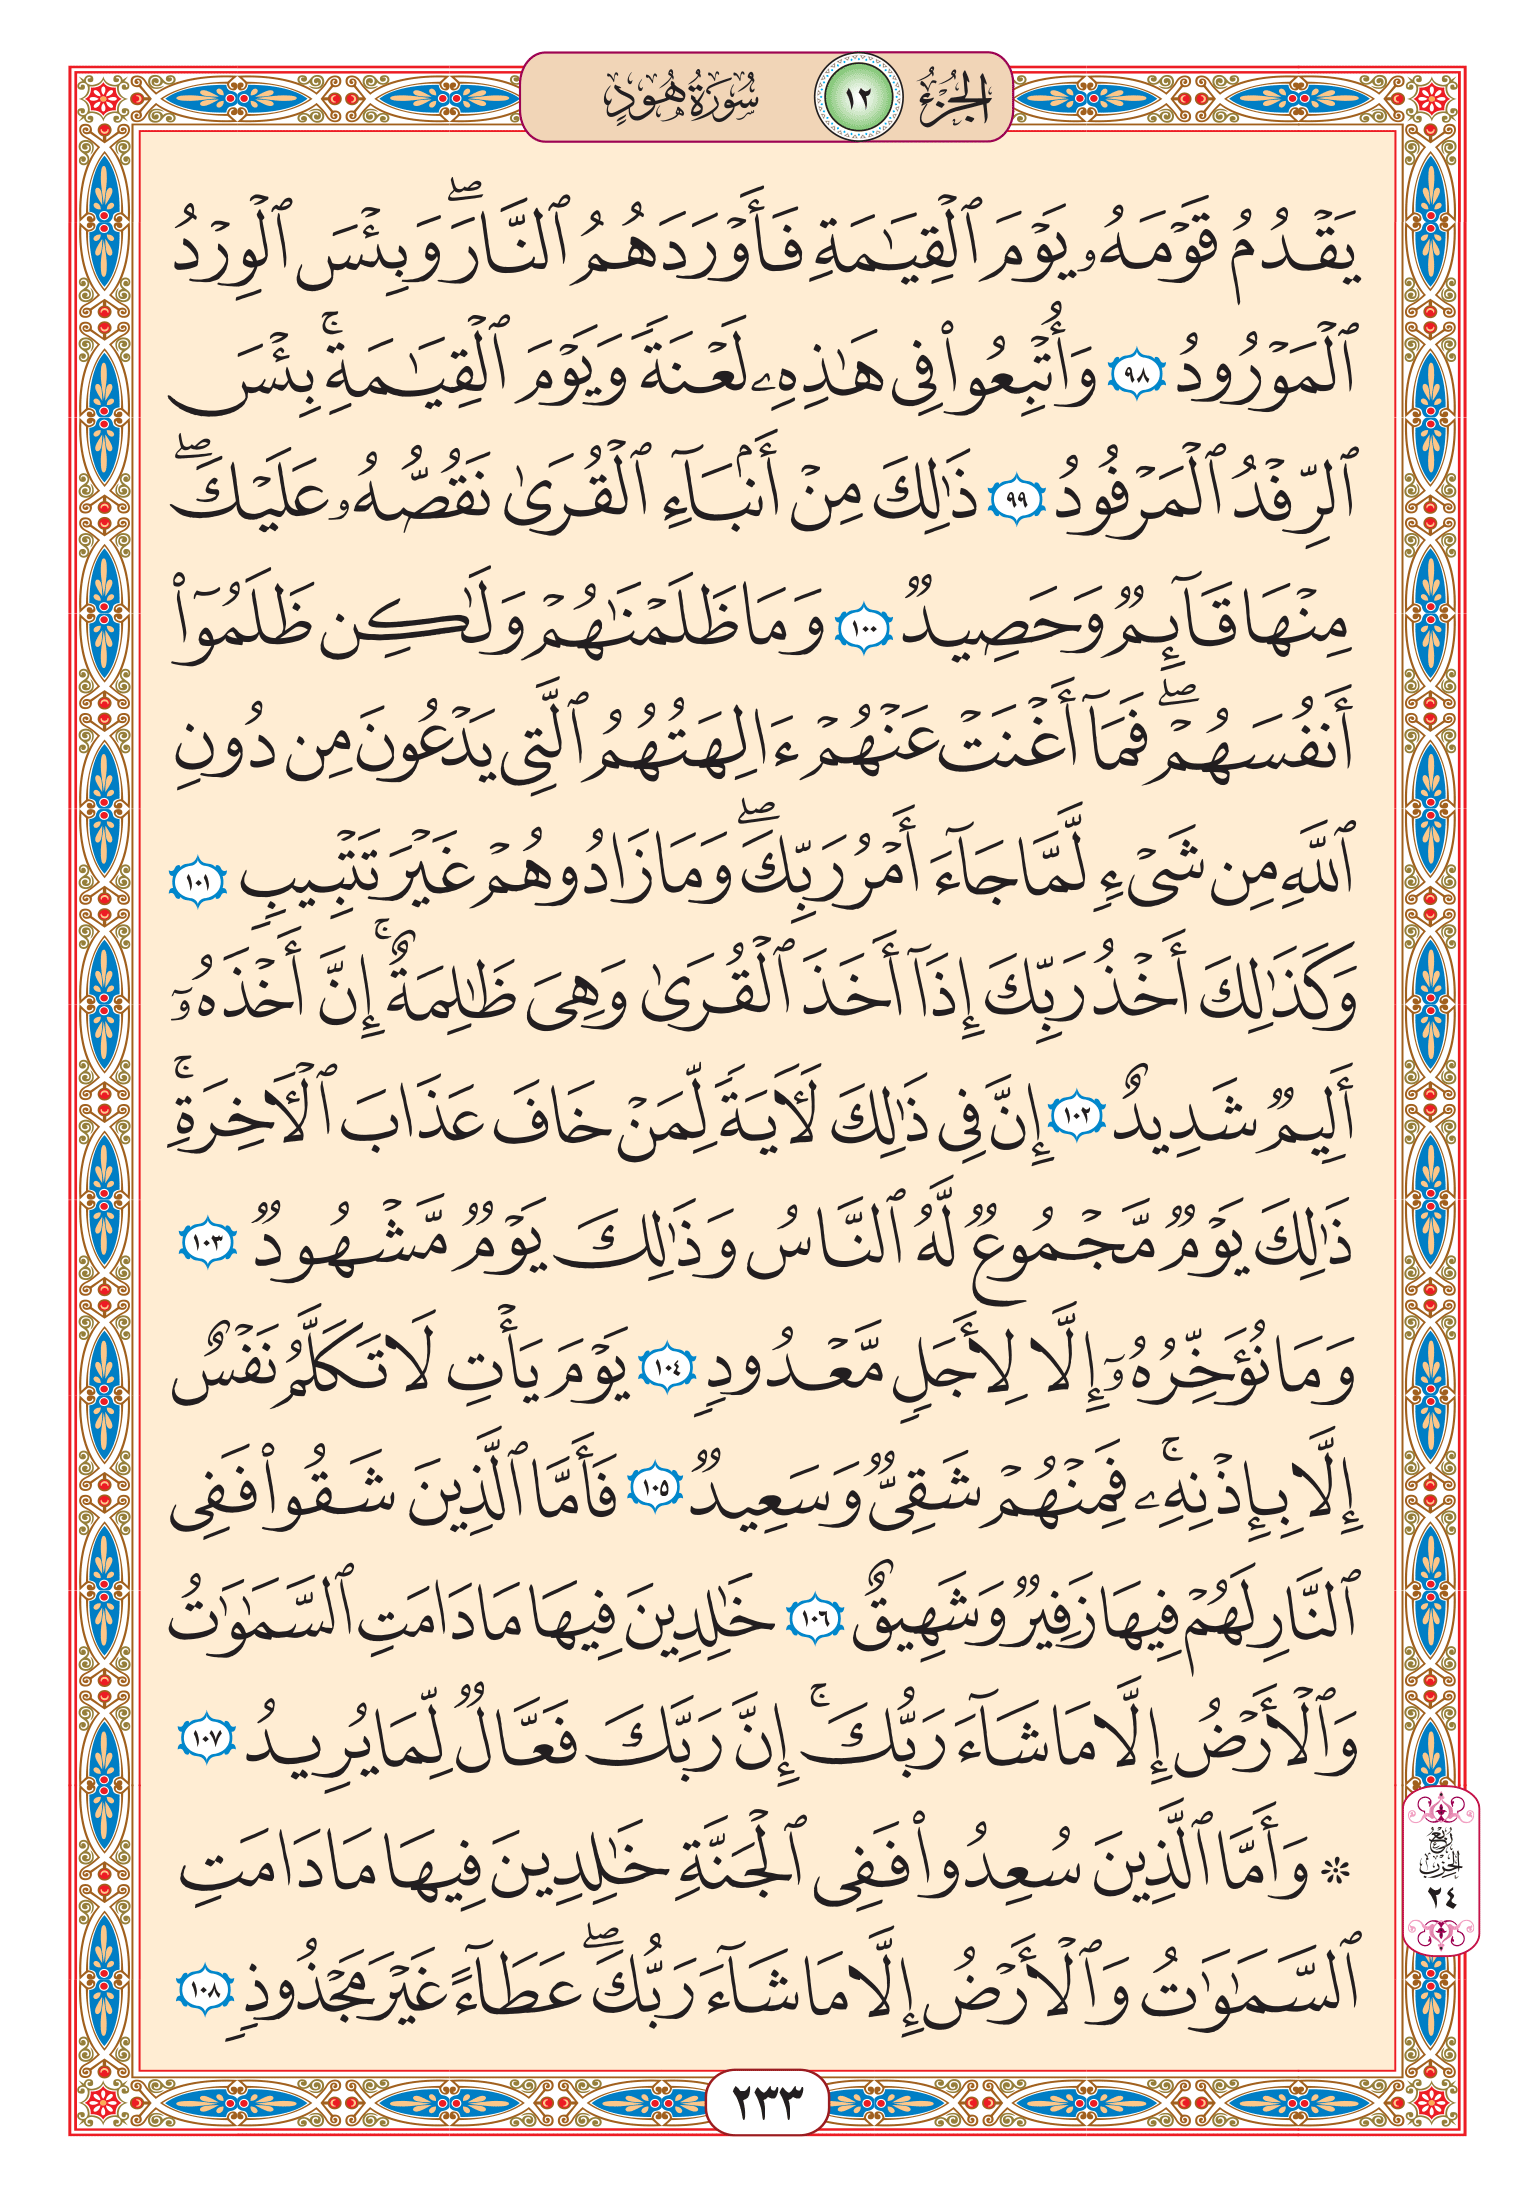 الجُزْءُ ١٢ سُورَةُ هُودٍ
يَقۡدُمُ قَوۡمَهُۥ يَوۡمَ ٱلۡقِيَٰمَةِ فَأَوۡرَدَهُمُ ٱلنَّارَۖ وَبِئۡسَ ٱلۡوِرۡدُ
ٱلۡمَوۡرُودُ ٩٨ وَأُتۡبِعُواْ فِي هَٰذِهِۦ لَعۡنَةٗ وَيَوۡمَ ٱلۡقِيَٰمَةِۚ بِئۡسَ
ٱلرِّفۡدُ ٱلۡمَرۡفُودُ ٩٩ ذَٰلِكَ مِنۡ أَنۢبَآءِ ٱلۡقُرَىٰ نَقُصُّهُۥ عَلَيۡكَۖ
مِنۡهَا قَآئِمٞ وَحَصِيدٞ ١٠٠ وَمَا ظَلَمۡنَٰهُمۡ وَلَٰكِن ظَلَمُوٓاْ
أَنفُسَهُمۡۖ فَمَآ أَغۡنَتۡ عَنۡهُمۡ ءَالِهَتُهُمُ ٱلَّتِي يَدۡعُونَ مِن دُونِ
ٱللَّهِ مِن شَيۡءٖ لَّمَّا جَآءَ أَمۡرُ رَبِّكَۖ وَمَا زَادُوهُمۡ غَيۡرَ تَتۡبِيبٖ ١٠١
وَكَذَٰلِكَ أَخۡذُ رَبِّكَ إِذَآ أَخَذَ ٱلۡقُرَىٰ وَهِيَ ظَٰلِمَةٌۚ إِنَّ أَخۡذَهُۥٓ
أَلِيمٞ شَدِيدٌ ١٠٢ إِنَّ فِي ذَٰلِكَ لَأٓيَةٗ لِّمَنۡ خَافَ عَذَابَ ٱلۡأٓخِرَةِۚ
ذَٰلِكَ يَوۡمٞ مَّجۡمُوعٞ لَّهُ ٱلنَّاسُ وَذَٰلِكَ يَوۡمٞ مَّشۡهُودٞ ١٠٣
وَمَا نُؤَخِّرُهُۥٓ إِلَّا لِأَجَلٖ مَّعۡدُودٖ ١٠٤ يَوۡمَ يَأۡتِ لَا تَكَلَّمُ نَفۡسٌ
إِلَّا بِإِذۡنِهِۦۚ فَمِنۡهُمۡ شَقِيّٞ وَسَعِيدٞ ١٠٥ فَأَمَّا ٱلَّذِينَ شَقُواْ فَفِي
ٱلنَّارِ لَهُمۡ فِيهَا زَفِيرٞ وَشَهِيقٌ ١٠٦ خَٰلِدِينَ فِيهَا مَا دَامَتِ ٱلسَّمَٰوَٰتُ
وَٱلۡأَرۡضُ إِلَّا مَا شَآءَ رَبُّكَۚ إِنَّ رَبَّكَ فَعَّالٞ لِّمَا يُرِيدُ ١٠٧
۞ وَأَمَّا ٱلَّذِينَ سُعِدُواْ فَفِي ٱلۡجَنَّةِ خَٰلِدِينَ فِيهَا مَا دَامَتِ
ٱلسَّمَٰوَٰتُ وَٱلۡأَرۡضُ إِلَّا مَا شَآءَ رَبُّكَۖ عَطَآءً غَيۡرَ مَجۡذُوذٖ ١٠٨
رُبْعُ
الحِزْبِ
٢٤
٢٣٣